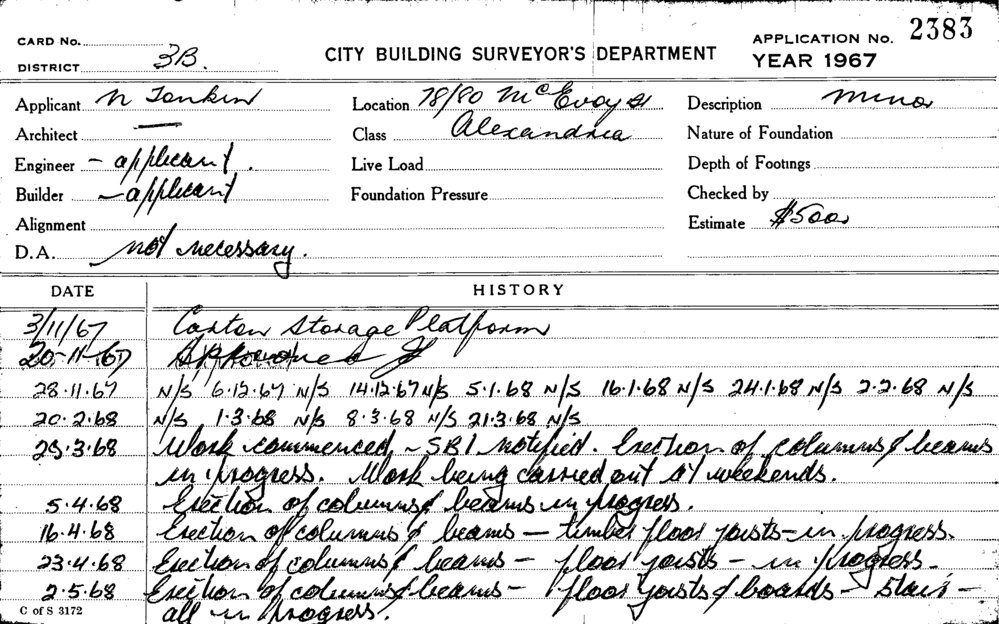 CARD No.
DISTRICT 3B.
CITY BUILDING SURVEYOR'S DEPARTMENT
APPLICATION No. 2383
YEAR 1967
Applicant N Tonkin
Location 78/80 McEvoy St
Description minor
Architect —
Class Alexandria
Nature of Foundation
Engineer - applicant.
Live Load
Depth of Footings
Builder - applicant
Foundation Pressure
Checked by
Alignment
Estimate $500
D.A. not necessary.
DATE HISTORY
3/11/67 Carton Storage Platform
20-11-67 Approved
28.11.67 N/S 6.12.67 N/S 14.12.67 N/S 5.1.68 N/S 16.1.68 N/S 24.1.68 N/S 2.2.68 N/S
20.2.68 N/S 1.3.68 N/S 8.3.68 N/S 21.3.68 N/S
25.3.68 Work commenced - SBI notified. Erection of columns & beams
in progress. Work being carried out at weekends.
5.4.68 Erection of columns & beams in progress.
16.4.68 Erection of columns & beams - timber floor joists - in progress.
23.4.68 Erection of columns & beams - floor joists - in progress.
2.5.68 Erection of columns & beams - floor joists & boards - stairs -
all in progress.
C of S 3172